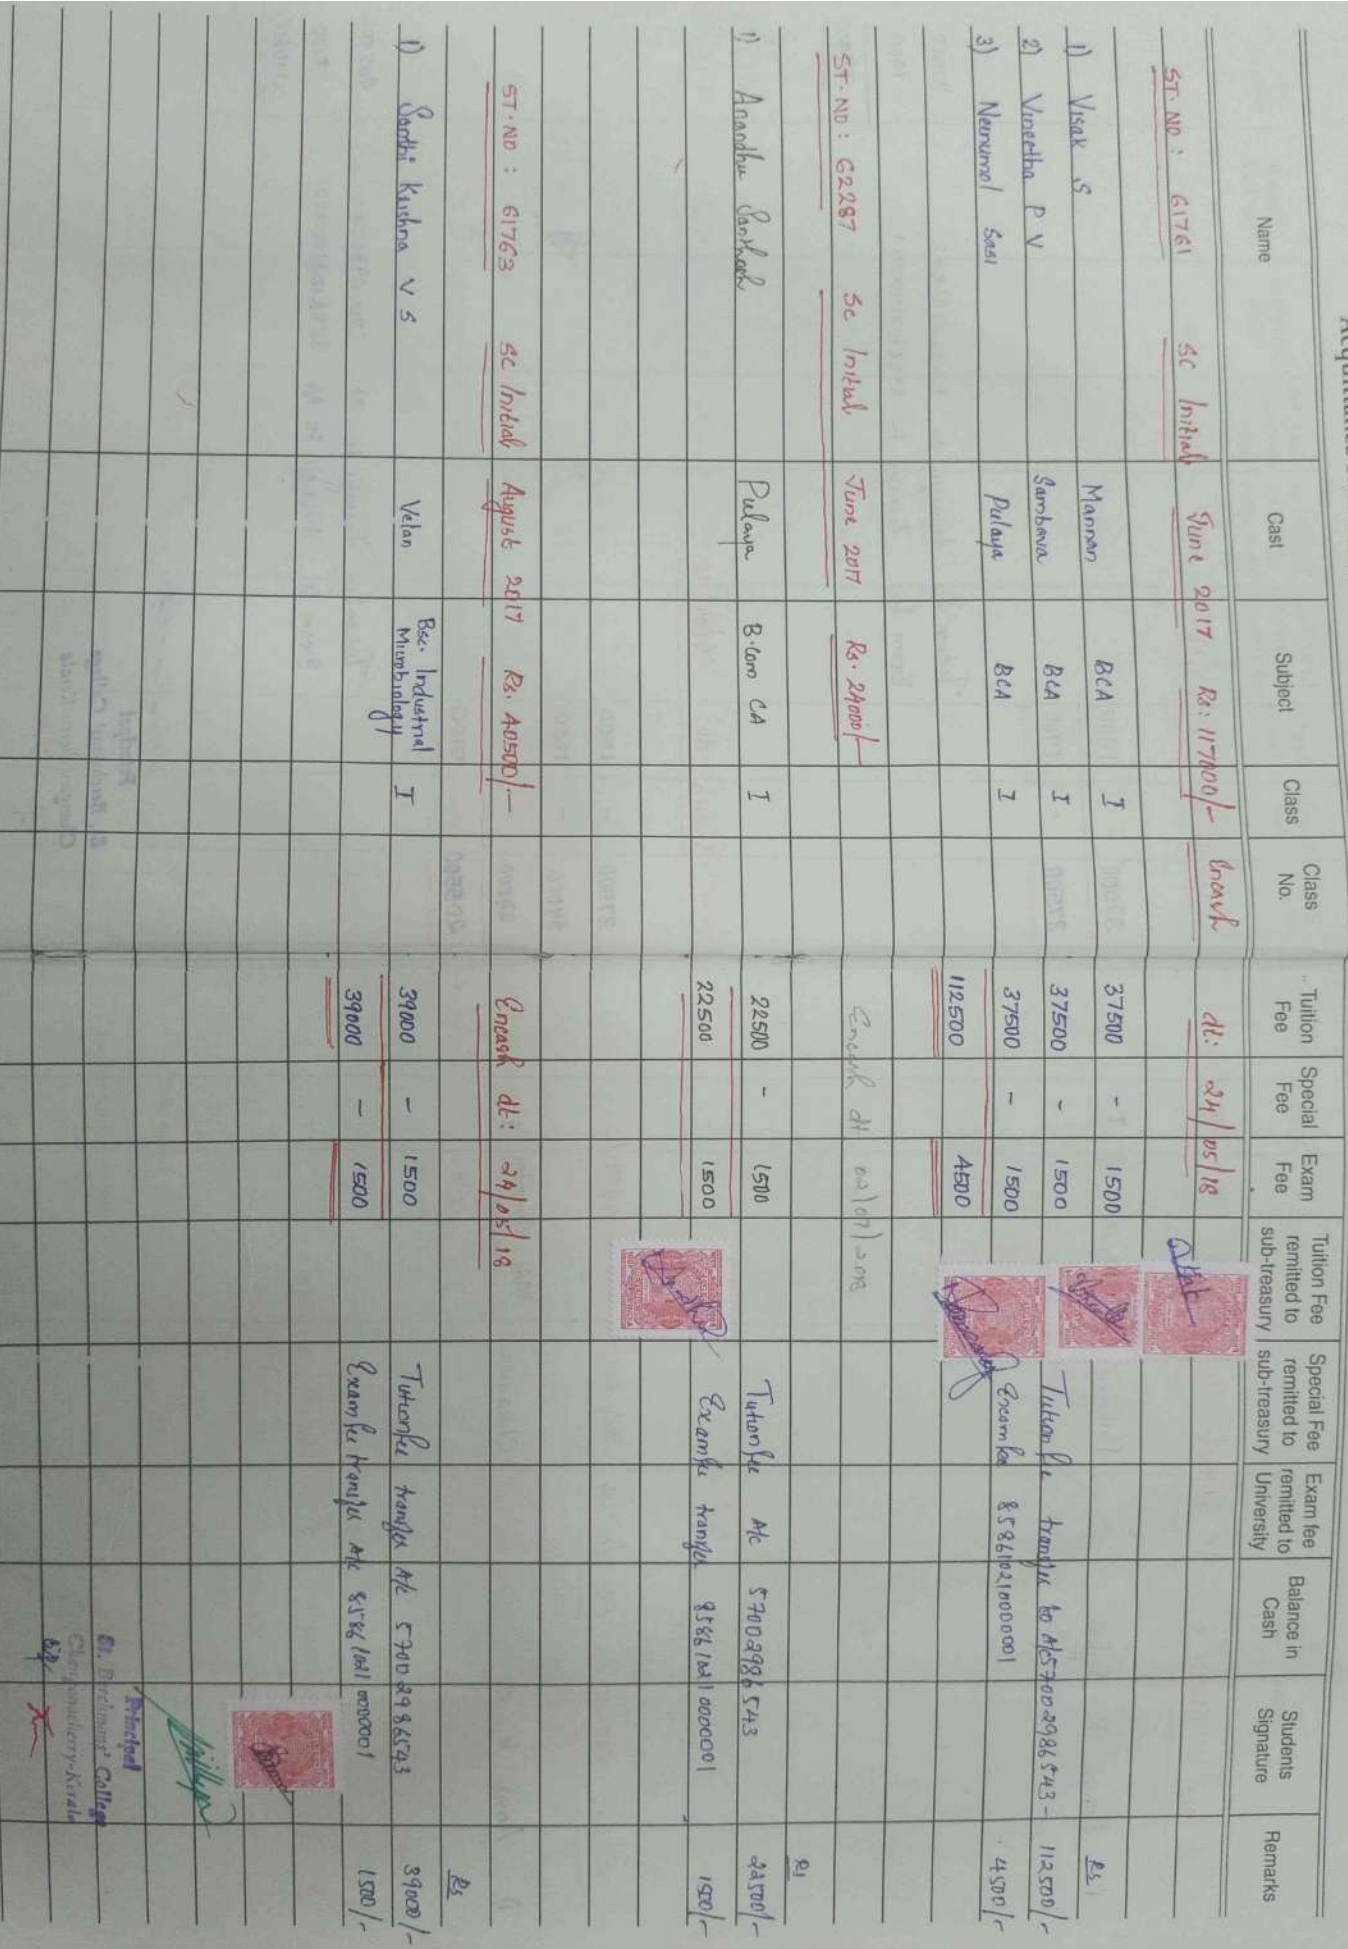 Name Cast Subject Class Class No. Tuition Fee Special Fee Exam Fee Tuition Fee remitted to sub-treasury Special Fee remitted to sub-treasury Exam fee remitted to University Balance in Cash Students Signature Remarks
ST. NO: 61761 SC Initial June 2017 Rs: 117000/- Encash dt: 24/05/18
1) Visak S Mannan BCA I 37500 - 1500 Rs
2) Vineetha P V Sambava BCA I 37500 - 1500 Tution fee transfer to A/c 57002986543 - 112500/-
3) Neenumol Sasi Pulaya BCA I 37500 - 1500 Exam fee 858610210000001 4500/-
112500 4500
ST. NO: 62287 SC Initial June 2017 Rs. 24000/- Encash dt 02/07/2018
Rs
1) Anandhu Santhosh Pulaya B.Com CA I 22500 - 1500 Tution fee A/c 57002986543 22500/-
22500 1500 Exam fee transfer 85861021000001 1500/-
ST. NO: 61763 SC Initial August 2017 Rs. 40500/- Encash dt: 24/05/18
Rs
1) Santhi Krishna V S Velan Bsc. Industrial Microbiology I 39000 - 1500 Tution fee transfer A/c 57002986543 39000/-
39000 - 1500 Exam fee transfer A/c 85861021000001 1500/-
Principal
St. Berchmans' College
Changanacherry-Kerala